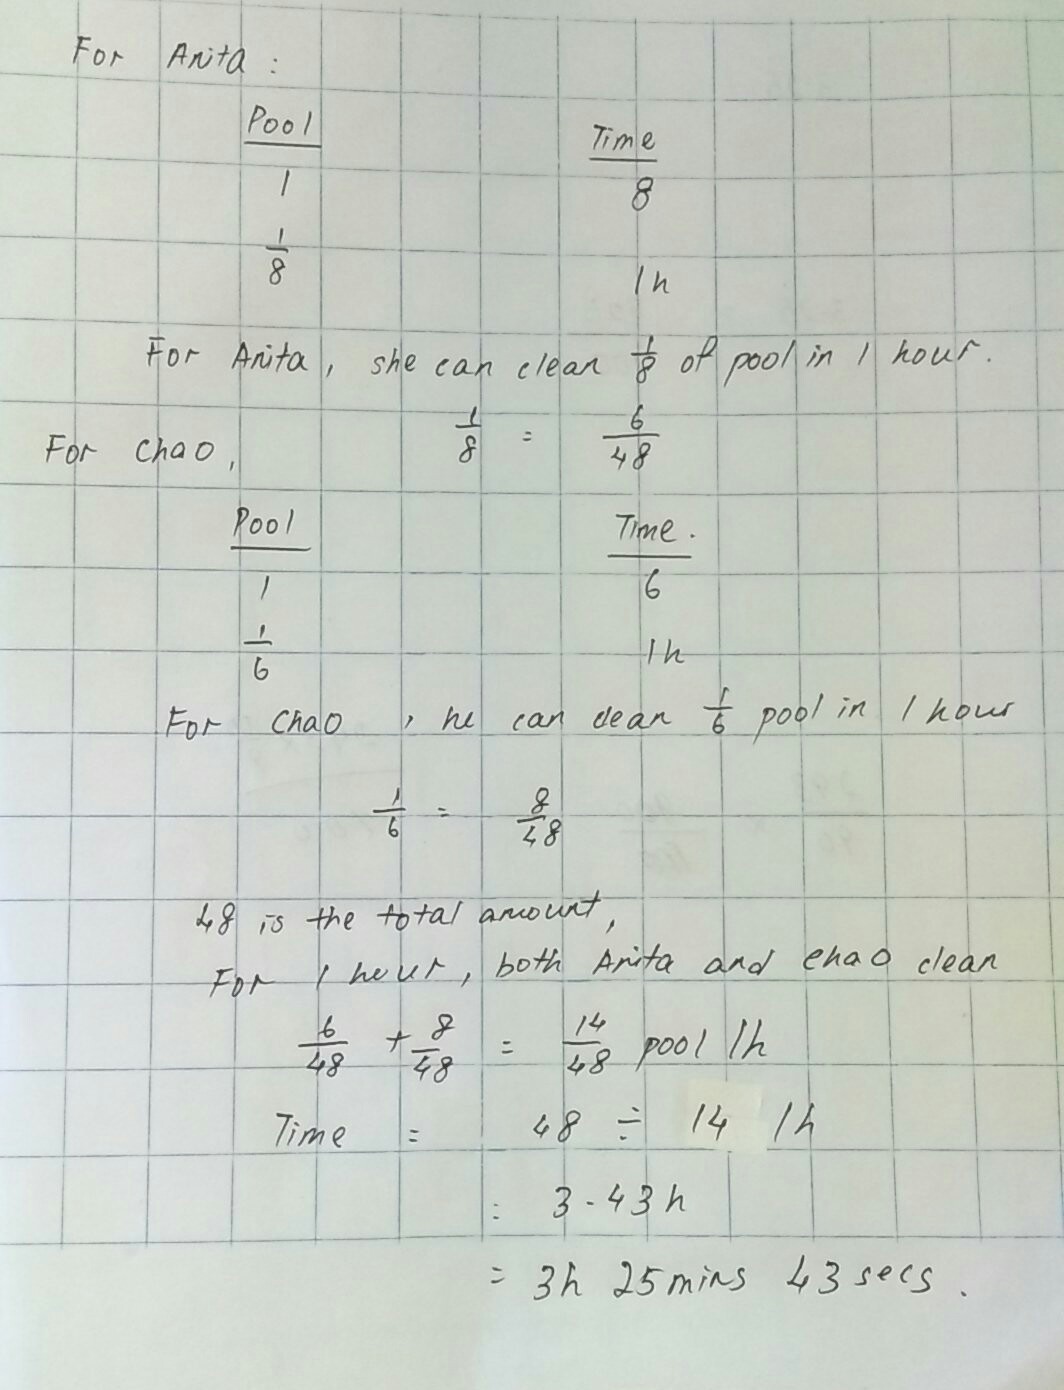 For Anita :
Pool Time
1 8
1/8 1h
For Anita, she can clean 1/8 of pool in 1 hour.
1/8 = 6/48
For Chao,
Pool Time.
1 6
1/6 1h
For Chao, he can clean 1/6 pool in 1 hour
1/6 = 8/48
48 is the total amount,
For 1 hour, both Anita and Chao clean
6/48 + 8/48 = 14/48 pool 1h
Time = 48 ÷ 14 1h
= 3.43h
= 3h 25mins 43secs.